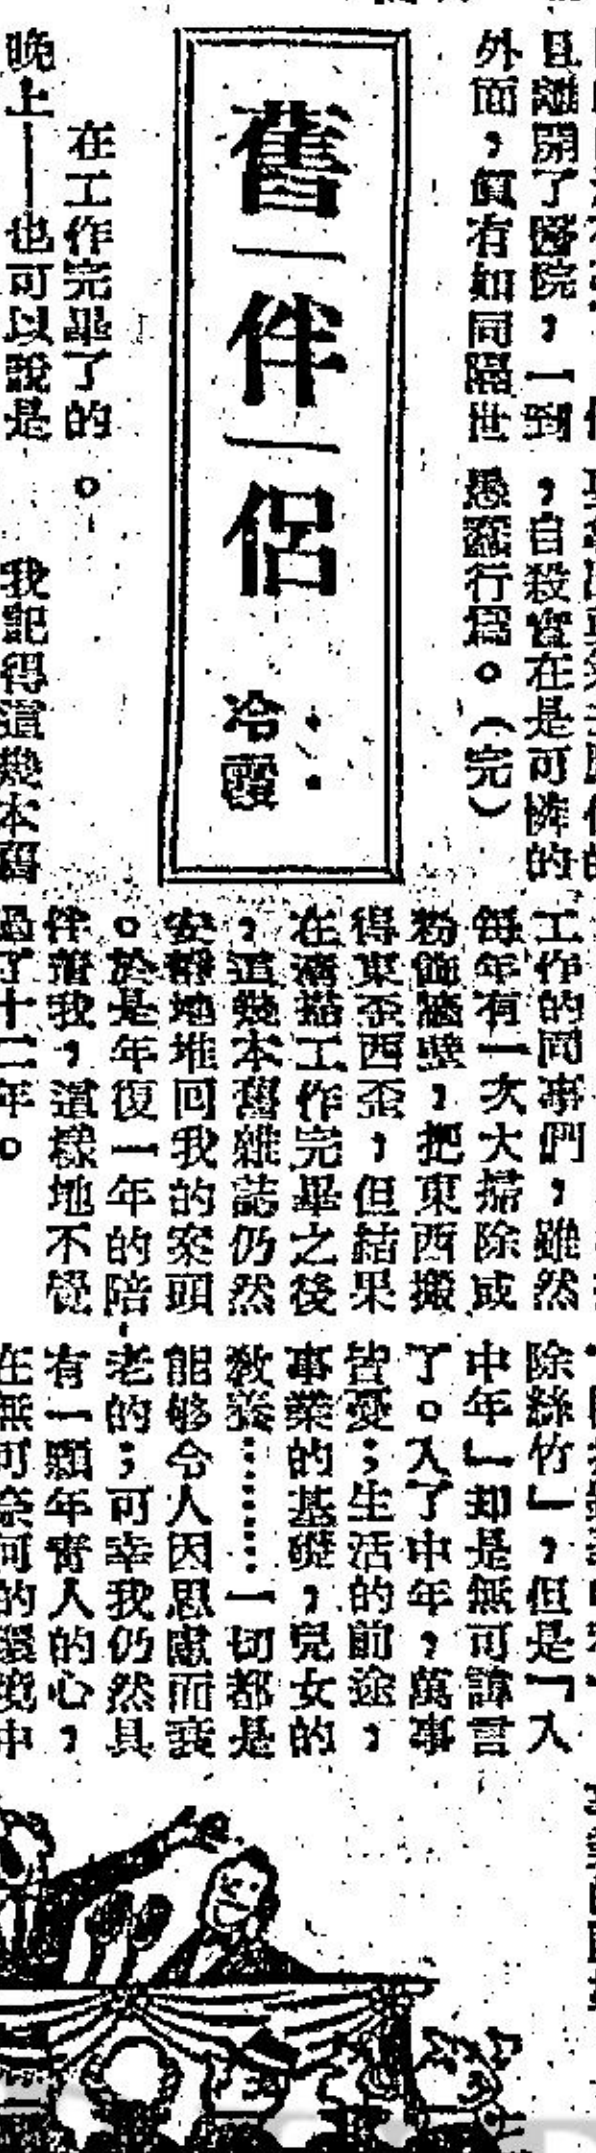 且離開了醫院，一到
外面，眞有如同隔世
，自殺實在是可憐的
愚蠢行爲。（完）
舊｜伴｜侶
冷霞
在工作完畢了的
晚上——也可以說是
。
我記得這幾本舊
工作的同事們，雖然
每年有一次大掃除或
粉飾牆壁，把東西搬
得東歪西歪，但結果
在清潔工作完畢之後
，這幾本舊雜誌仍然
安靜地堆回我的案頭
。於是年復一年的陪
伴着我，這樣地不覺
過了十二年。
除絲竹」，但是「入
中年」却是無可諱言
了。入了中年，萬事
皆憂；生活的前途，
事業的基礎，兒女的
敎養………一切都是
能够令人因思慮而衰
老的；可幸我仍然具
有一顆年靑人的心，
在無可奈何的環境中